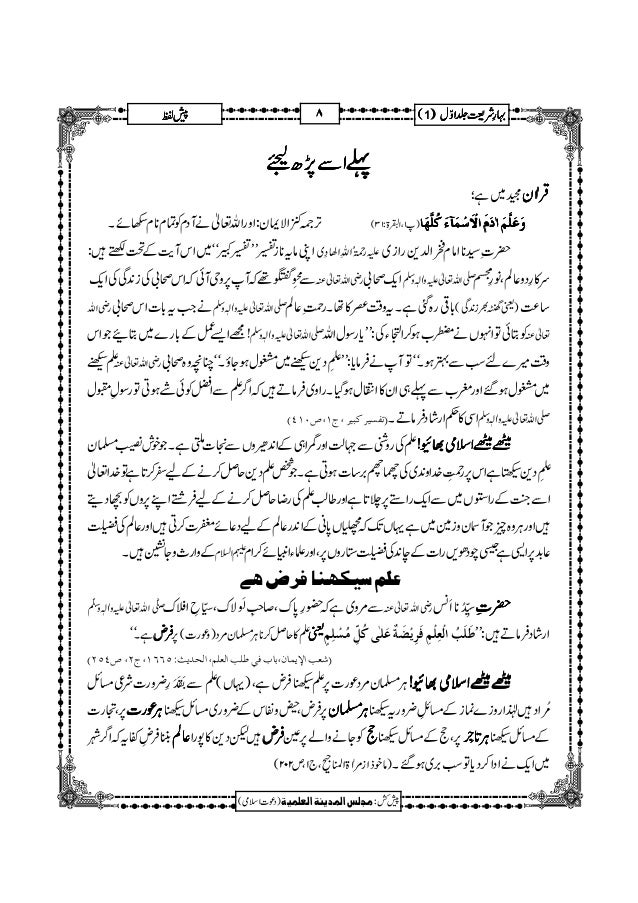 بہارِ شریعت جلد اوّل (1)
۸
پیش لفظ
پہلے اسے پڑھ لیجئے
قرآن مجید میں ہے؛
وَعَلَّمَ اٰدَمَ الْاَسْمَآءَ كُلَّهَا (پ۱،البقرۃ:۳۱) ترجمہ کنز الایمان: اور اللہ تعالیٰ نے آدم کو تمام نام سکھائے ۔
حضرتِ سیدنا امام فخر الدین رازی علیہ رحمۃ اللہ الھادی اپنی مایہ ناز تفسیر’’ تفسیر کبیر‘‘ میں اس آیت کے تحت لکھتے ہیں:
سرکارِ دو عالم، نورِ مجسم صلی اللہ تعالیٰ علیہ والہٖ وسلم ایک صحابی رضی اللہ تعالیٰ عنہ سے محوِ گفتگو تھے کہ آپ پر وحی آئی کہ اس صحابی کی زندگی کی ایک
ساعت (یعنی گھنٹہ بھر زندگی) باقی رہ گئی ہے۔ یہ وقت عصر کا تھا۔ رحمتِ عالم صلی اللہ تعالیٰ علیہ والہٖ وسلم نے جب یہ بات اس صحابی رضی اللہ
تعالیٰ عنہ کو بتائی تو انہوں نے مضطرب ہو کر التجاء کی: ’’یارسول اللہ صلی اللہ تعالیٰ علیہ والہٖ وسلم! مجھے ایسے عمل کے بارے میں بتائیے جو اس
وقت میرے لئے سب سے بہتر ہو۔‘‘ تو آپ نے فرمایا: ’’علمِ دین سیکھنے میں مشغول ہو جاؤ۔‘‘ چنانچہ وہ صحابی رضی اللہ تعالیٰ عنہ علم سیکھنے
میں مشغول ہو گئے اور مغرب سے پہلے ہی ان کا انتقال ہو گیا۔ راوی فرماتے ہیں کہ اگر علم سے افضل کوئی شے ہوتی تو رسولِ مقبول
صلی اللہ تعالیٰ علیہ والہٖ وسلم اسی کا حکم ارشاد فرماتے ۔ (تفسیر کبیر ، ج۱، ص۴۱۰)
میٹھے میٹھے اسلامی بھائیو! علم کی روشنی سے جہالت اور گمراہی کے اندھیروں سے نجات ملتی ہے۔ جو خوش نصیب مسلمان
علمِ دین سیکھتا ہے اس پر رحمتِ خداوندی کی چھما چھم برسات ہوتی ہے۔ جو شخص علمِ دین حاصل کرنے کے لیے سفر کرتا ہے تو خدا تعالیٰ
اسے جنت کے راستوں میں سے ایک راستے پر چلاتا ہے اور طالب علم کی رضا حاصل کرنے کے لیے فرشتے اپنے پروں کو بچھا دیتے
ہیں اور ہر وہ چیز جو آسمان و زمین میں ہے یہاں تک کہ مچھلیاں پانی کے اندر عالم کے لیے دعائے مغفرت کرتی ہیں اور عالم کی فضیلت
عابد پر ایسی ہے جیسی چودھویں رات کے چاند کی فضیلت ستاروں پر، اور علماء انبیائے کرام علیہم السلام کے وارث و جانشین ہیں۔
علم سیکھنا فرض ہے
حضرتِ سیّدُ نا اَنس رضی اللہ تعالیٰ عنہ سے مروی ہے کہ حضورِ پاک، صاحبِ لَولاک، سیّاحِ افلاک صلی اللہ تعالیٰ علیہ والہٖ وسلم
ارشاد فرماتے ہیں: ’’طَلَبُ الْعِلْمِ فَرِيْضَةٌ عَلٰى كُلِّ مُسْلِمٍ یعنی علم کا حاصل کرنا ہر مسلمان مرد (و عورت) پر فرض ہے۔‘‘
(شعب الإيمان، باب في طلب العلم، الحديث: ۱۶۶۵، ج۲، ص۲۵۴)
میٹھے میٹھے اسلامی بھائیو! ہر مسلمان مرد عورت پر علم سیکھنا فرض ہے، (یہاں) علم سے بقَدَرِ ضرورت شرعی مسائل
مُراد ہیں لہٰذا روزے نماز کے مسائلِ ضروریہ سیکھنا ہر مسلمان پر فرض، حیض و نفاس کے ضروری مسائل سیکھنا ہر عورت پر، تجارت
کے مسائل سیکھنا ہر تاجر پر، حج کے مسائل سیکھنا حج کو جانے والے پر عین فرض ہیں لیکن دین کا پورا عالم بننا فرضِ کفایہ کہ اگر شہر
میں ایک نے ادا کر دیا تو سب بری ہو گئے ۔ (ماخوذ از مراۃ المناجیح ،ج۱،ص۲۰۲)
پیش کش: مجلس المدينة العلمية (دعوتِ اسلامی)